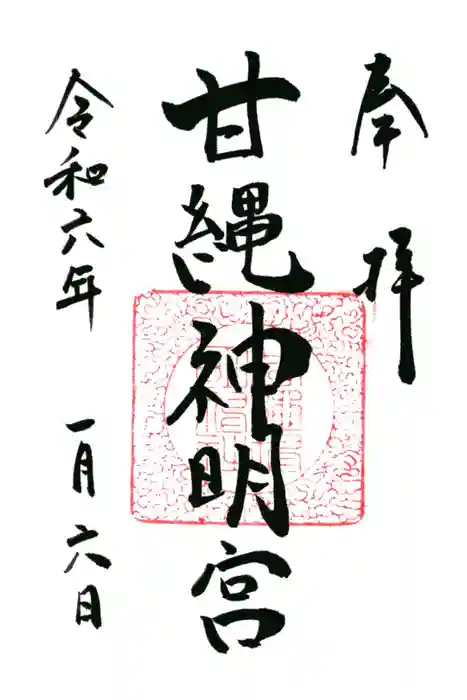 奉拝
甘縄神明宮
令和六年 一月六日